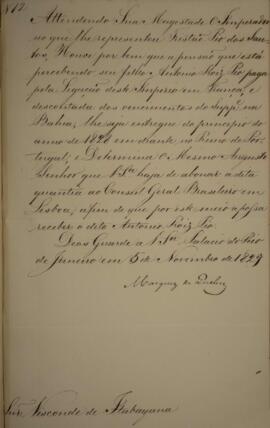 Nº 12.
Attendendo Sua Magestade O Imperador
ao que lhe representou Tristão Pio dos San-
tos, Houve por bem que a pensão que está
percebendo seu filho Antonio Roiz Pio paga
pela Legação deste Imperio em França, e
descontada dos vencimentos do Suppe. na
Bahia, lhe seja entregue do principio do
anno de 1828 em diante no Reino de Por-
tugal; e Determina O Mesmo Augusto
Senhor que V. Sa. haja de abonar a dita
quantia ao Consul Geral Brasileiro em
Lisboa, afim de que por este meio a possa
receber o dito Antonio Roiz Pio.
Deos Guarde a V. Sa. Palacio do Rio
de Janeiro em 5 de Novembro de 1827
Marquez de Queluz
Snr. Visconde de Itabayana